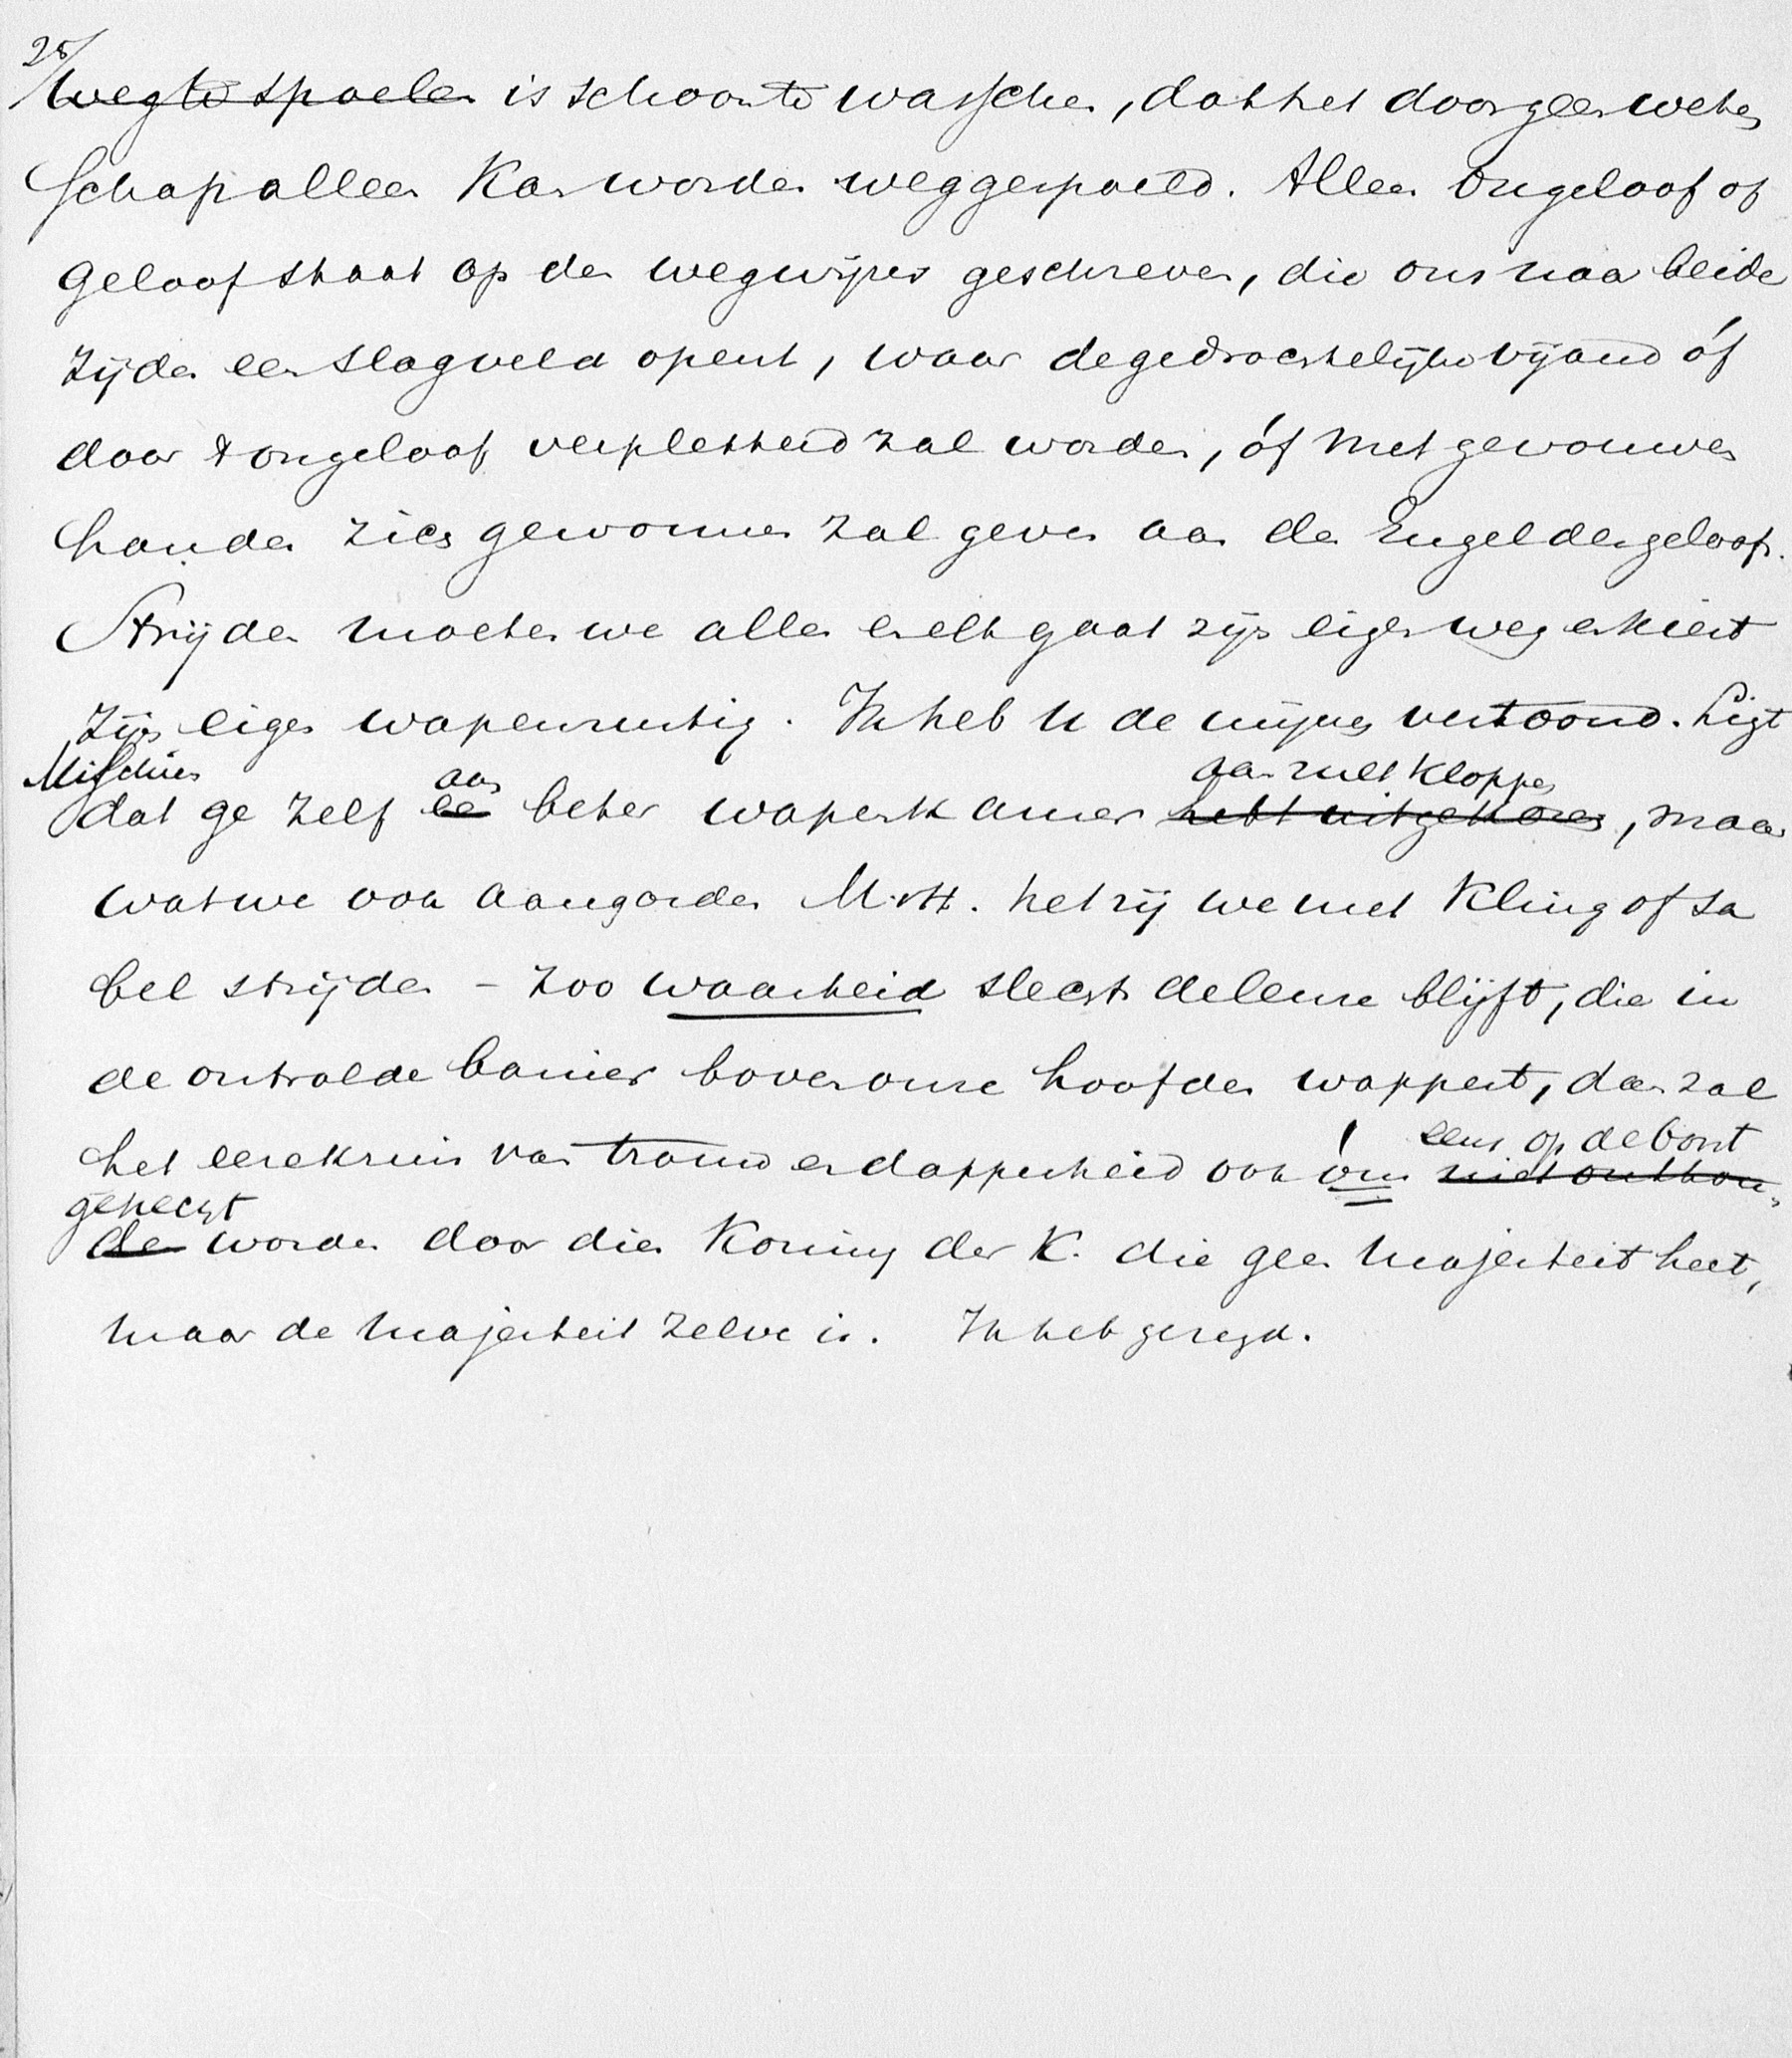 25/
~~weg te spoelen~~ is schoon te wasschen, dat het door geen weten
schap alleen kan worden weggespoeld. Alleen Ongeloof of
geloof staat op den wegwijzer geschreven, die ons naar beide
zijden een slagveld opent, waar de gedrochtelijke vijand óf
door 't ongeloof verpletterd zal worden, óf met gevouwen
handen zich gewonnen zal geven aan den Engel des geloofs.
Strijden moeten we allen en elk gaat zijn eigen weg en kiest
zijn eigen wapenrusting. Ik heb U de mijne vertoond. Ligt
Misschien aan aan zult kloppen
dat ge zelf ~~een~~ beter wapenkamer ~~hebt uitgekozen~~, maar
wat we ook aangorden M.H. hetzij we met Kling of sa
bel strijden – zoo waarheid slechts de leuze blijft, die in
de ontrolde banier boven onze hoofden wappert, dan zal
eens op de borst
het eerekruis van trouw en dapperheid ook óns ~~niet onthou-~~
gehecht
~~den~~ worden door dien Koning der K. die geen Majesteit heet,
maar de Majesteit zelve is. Ik heb gezegd.